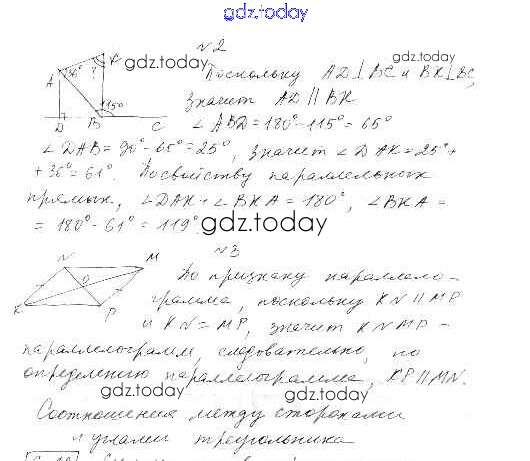 gdz.today
№2
gdz.today gdz.today
Поскольку AD⊥BC и BK⊥BC,
значит AD∥BK
∠ABD=180°-115°=65°
∠DAB=90°-65°=25°, значит ∠DAK=25°+
+36°=61°. По свойству параллельных
прямых, ∠DAK+∠BKA=180°, ∠BKA=
=180°-61°=119°.
gdz.today
№3
По признаку параллело-
грамма, поскольку KN∥MP
и KN=MP, значит KNMP-
параллелограмм, следовательно, по
определению параллелограмма, KP∥MN.
gdz.today gdz.today
Соотношения между сторонами
и углами треугольника
A
36°
?
K
115°
D
B
C
N
M
O
K
P